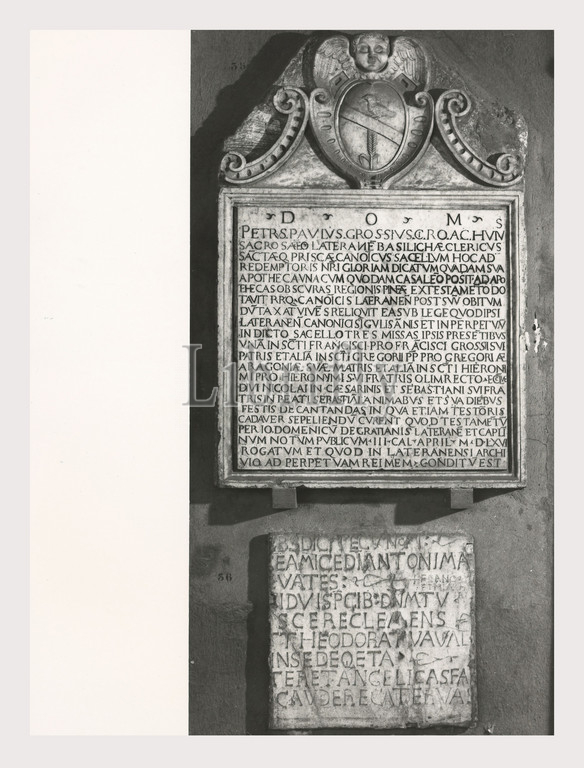 D O M S
PETRS PAVLVS GROSSIVS C RO AC HVIV
SACROSAEO LATERANE BASILICHÆ CLERICVS
SACTÆQ PRISCÆ CANOICVS SACELLVM HOC AD
REDEMPTORIS NRI GLORIAM DICATVM QVADAM SVA
APOTHECA VNA CVM QVODAM CASALEO POSIT AD APO
THECAS OBSCVRAS REGIONIS PINEÆ EX TESTAMETO DO
TAVIT RRQ CANOICIS LAERANEN POST SVV OBITVM
DVTAXAT VIVES RELIQVIT EA SVB LEGE QVOD IPSI
LATERANEN CANONICI SIGVLIS ANIS ET IN PERPETVV
IN DICTO SACELLO TRES MISSAS IPSIS PRESETIBVS
VNA IN SCTI FRANCISCI PRO FRACISCI GROSSII SVI
PATRIS ET ALIA IN SCTI GREGORII PP PRO GREGORIÆ
ARAGONIÆ SVÆ MATRIS ET ALIA IN SCTI HIERONI
MI PRO HIERONYMI SVI FRATRIS OLIM RECTO
DIVI NICOLAI IN CÆSARINIS ET SEBASTIANI SVI FRA
TRIS IN BEATI SEBASTIALA NIMABVS ET SVA DIEBVS
FESTIS DECANTANDAS IN QVA ETIAM TESTORIS
CADAVER SEPELIENDV CVRENT QVOD TESTAMETV
PER IO DOMENICV DE GRATIANIS LATERANE ET CAPIT
NVM NOT VM PVBLICVM III CAL APRIL M D LXVI
ROGATVM ET QVOD IN LATERANENSI ARCHI
VIO AD PERPETVAM REI MEM CONDITV EST
EAMICEDIANTONIMA
VATES
IDVISPCIB DVMTV
SCERECLEMENS
THEODORATVAVAL
INSEDEQETA
TERETANGELICASFA
CAVDERECATERVA
56